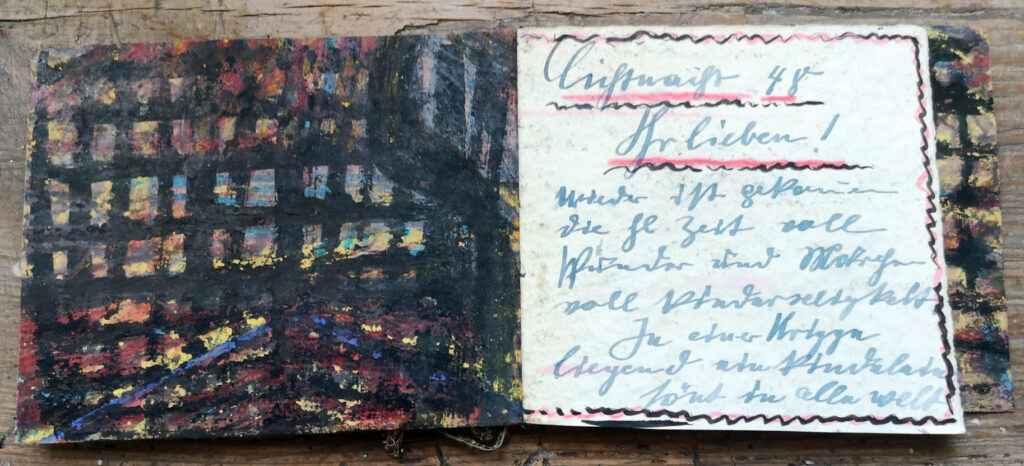 Lichtnacht 48
Ihr lieben!
wieder ist gekommen
die hl Zeit voll
Wunder und Märchen
voll Kinderseligkeit
In einer Krippn
liegend ein Kindelein
tönt in alle welt